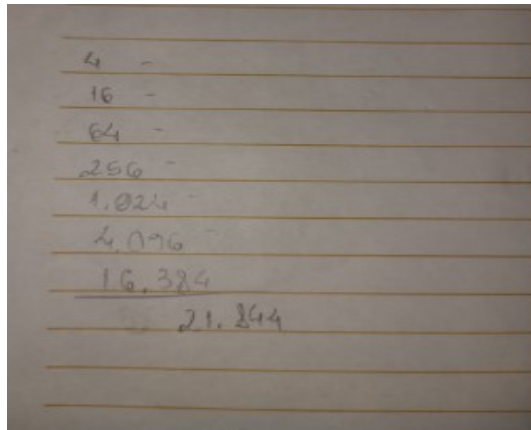 4 -
16 -
64 -
256 -
1.024 -
4.096 -
16.384
21.844